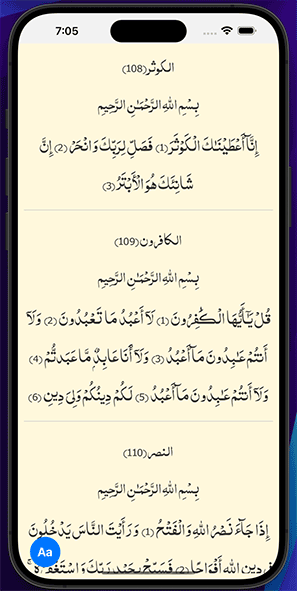 7:05
الكوثر(108)
بِسْمِ اللهِ الرَّحْمَٰنِ الرَّحِيمِ
إِنَّآ أَعْطَيْنَٰكَ الْكَوْثَرَ (1) فَصَلِّ لِرَبِّكَ وَانْحَرْ (2) إِنَّ
شَانِئَكَ هُوَ الْأَبْتَرُ (3)
الكافرون(109)
بِسْمِ اللهِ الرَّحْمَٰنِ الرَّحِيمِ
قُلْ يَٰٓأَيُّهَا الْكَٰفِرُونَ (1) لَآ أَعْبُدُ مَا تَعْبُدُونَ (2) وَلَآ
أَنتُمْ عَٰبِدُونَ مَآ أَعْبُدُ (3) وَلَآ أَنَا۠ عَابِدٌ مَّا عَبَدتُّمْ (4)
وَلَآ أَنتُمْ عَٰبِدُونَ مَآ أَعْبُدُ (5) لَكُمْ دِينُكُمْ وَلِيَ دِينِ (6)
النصر(110)
بِسْمِ اللهِ الرَّحْمَٰنِ الرَّحِيمِ
إِذَا جَآءَ نَصْرُ اللهِ وَالْفَتْحُ (1) وَرَأَيْتَ النَّاسَ يَدْخُلُونَ
فِي دِينِ اللهِ أَفْوَاجًا (2) فَسَبِّحْ بِحَمْدِ رَبِّكَ وَاسْتَغْفِرْهُ ۚ
Aa